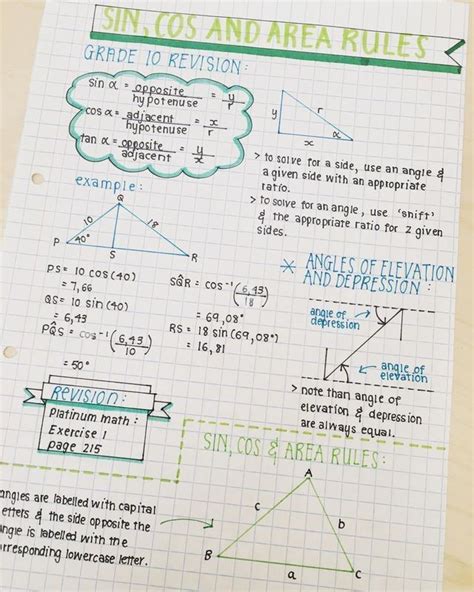 SIN, COS AND AREA RULES
GRADE 10 REVISION:
sin α = opposite/hypotenuse = y/r
cos α = adjacent/hypotenuse = x/r
tan α = opposite/adjacent = y/x
y
r
α
x
> to solve for a side, use an angle &
a given side with an appropriate
ratio.
> to solve for an angle, use 'shift'
& the appropriate ratio for 2 given
sides.
example:
Q
10
18
P
40°
S
R
PS = 10 cos(40)
= 7,66
QS = 10 sin(40)
= 6,43
PQ̂S = cos⁻¹(6,43/10)
= 50°
SQ̂R = cos⁻¹(6,43/18)
= 69,08°
RS = 18 sin(69,08°)
= 16,81
* ANGLES OF ELEVATION
AND DEPRESSION:
angle of
depression
angle of
elevation
> note than angle of
elevation & depression
are always equal.
REVISION:
Platinum Math:
Exercise 1
page 215
SIN, COS & AREA RULES:
angles are labelled with capital
letters & the side opposite the
angle is labelled with the
corresponding lowercase letter.
A
c
b
B
a
C